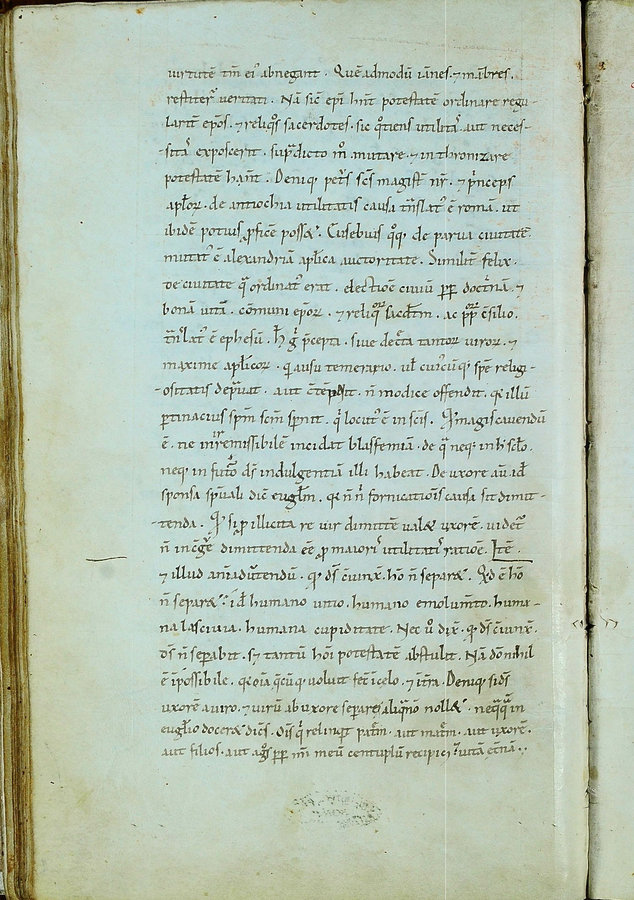 uirtutē tm̄ ei' abnegant . Quēadmodū iānes . ⁊ mābres .
restiterᷣ ueritati . Nā sic̄ ep̄i hn̄t potestatē ordinare regu-
larit̄ ep̄os . ⁊ reliqͦs sacerdotes . sic qͦtiens utilitaſ aut neces-
sitaſ exposcerit . supͣdicto mͦ mutare . ⁊ inthronizare
potestatē habn̄t . Deniqꝫ petrꝰ scs̄ magist̄ nr̄ . ⁊ pͥnceps
apl̄oꝝ . de antiochia utilitatis causa tn̄slatꝰ ē romā . ut
ibidē potius ꝓficē poss& . Eusebius qͦqꝫ de parua ciuitate
mutatꝰ ē alexandriā apl̄ica auctoritate . Similit̄ felix .
de ciuitate qͣ ordinatꝰ erat . electiōe ciuiū ꝓp̄ doctͥnā . ⁊
bonā uitā . cōmuni ep̄oꝝ . ⁊ reliqͦꝝ sacd̄tm . ac ꝓp̄ cͦsilio .
tn̄slatꝰ ē ephesū . H̄ gͦ p̄cepta . siue decͤta tantoꝝ uiroꝝ . ⁊
maxime apl̄icoꝝ . qͥ ausu temerario . ul̄ cuiꝰcūqꝫ spē religi-
ositatis dep̄uat . aut cͦtēpsit . n̄ modice offendit . qꝫ illū
ꝑtinacius spm̄ scm̄ sp̄nit . qͥ locutꝰ ē in scīs . Qͥ magis cauendū
ē . ne in irremissibilē incidat blasfemiā . de qͣ neqꝫ in h̄ scl̄o .
neqꝫ in futͦo ds̄ indulgentiā illi habeat . De uxore aū id̄
sponsa spūali dic̄ euḡlm . qꝫ n̄ nͥ fornicatiōis causa sit dimit-
tenda . Qͥ si ꝓ illicita re uir dimittē̄ ual& uxorē . uidet̄
n̄ incͦgͤ dimittenda eē ꝓ maioriſ utilitatiſ ratiōe . Itē .
⁊ illud aīaduͤtendū . qꝫ ds̄ cͦiunx̄ . hō n̄ separ& . Qd̄ ē hō
n̄ separ& ? id̄ humano uitio . humano emolumͤto . huma-
na lasciuia . humana cupiditate . Nec uͦ dix̄ . qꝫ ds̄ cͦiunx̄ .
ds̄ n̄ sepabit . sꝫ tantū hōi potestatē abstulit . Nā dōnihil
ē īpossibile . qꝫ oīa q̄cūqꝫ uoluit fec̄ ī celo . ⁊ ī tr̄a . Deniqꝫ si ds̄
uxorē a uiro . ⁊ uirū ab uxore separe aliqͣndo noll& . neqͣqͣ in
euḡlio docer& dicēs . Oīs qͥ relinqͥt pat̄m . aut mat̄m . aut uxorē .
aut filios . aut agͦs ꝓp̄ nm̄ meū centuplū recipi& . ⁊ uitā et̄nā .